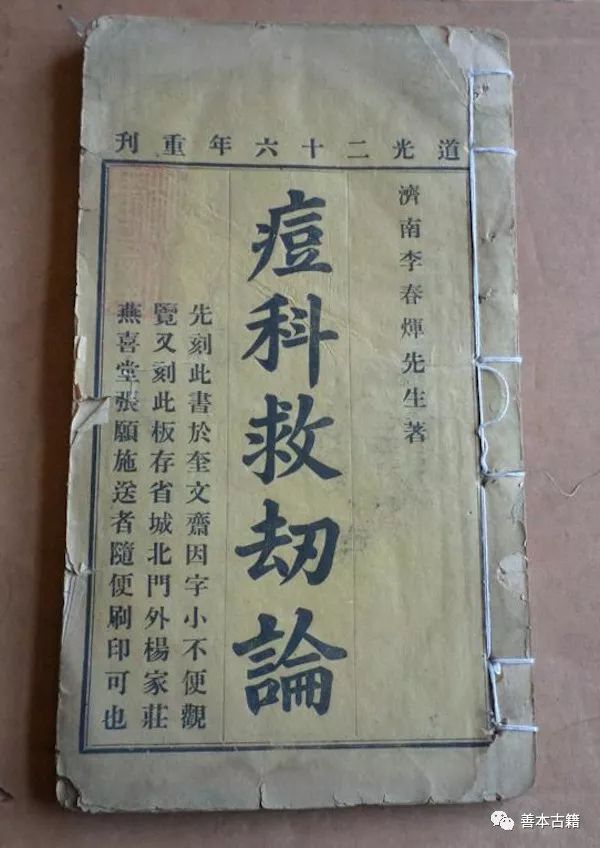 道光二十六年重刊
濟南李春煇先生著
痘科救刼論
先刻此書於奎文齋因字小不便觀
覽又刻此板存省城北門外楊家莊
燕喜堂張願施送者隨便刷印可也
善本古籍